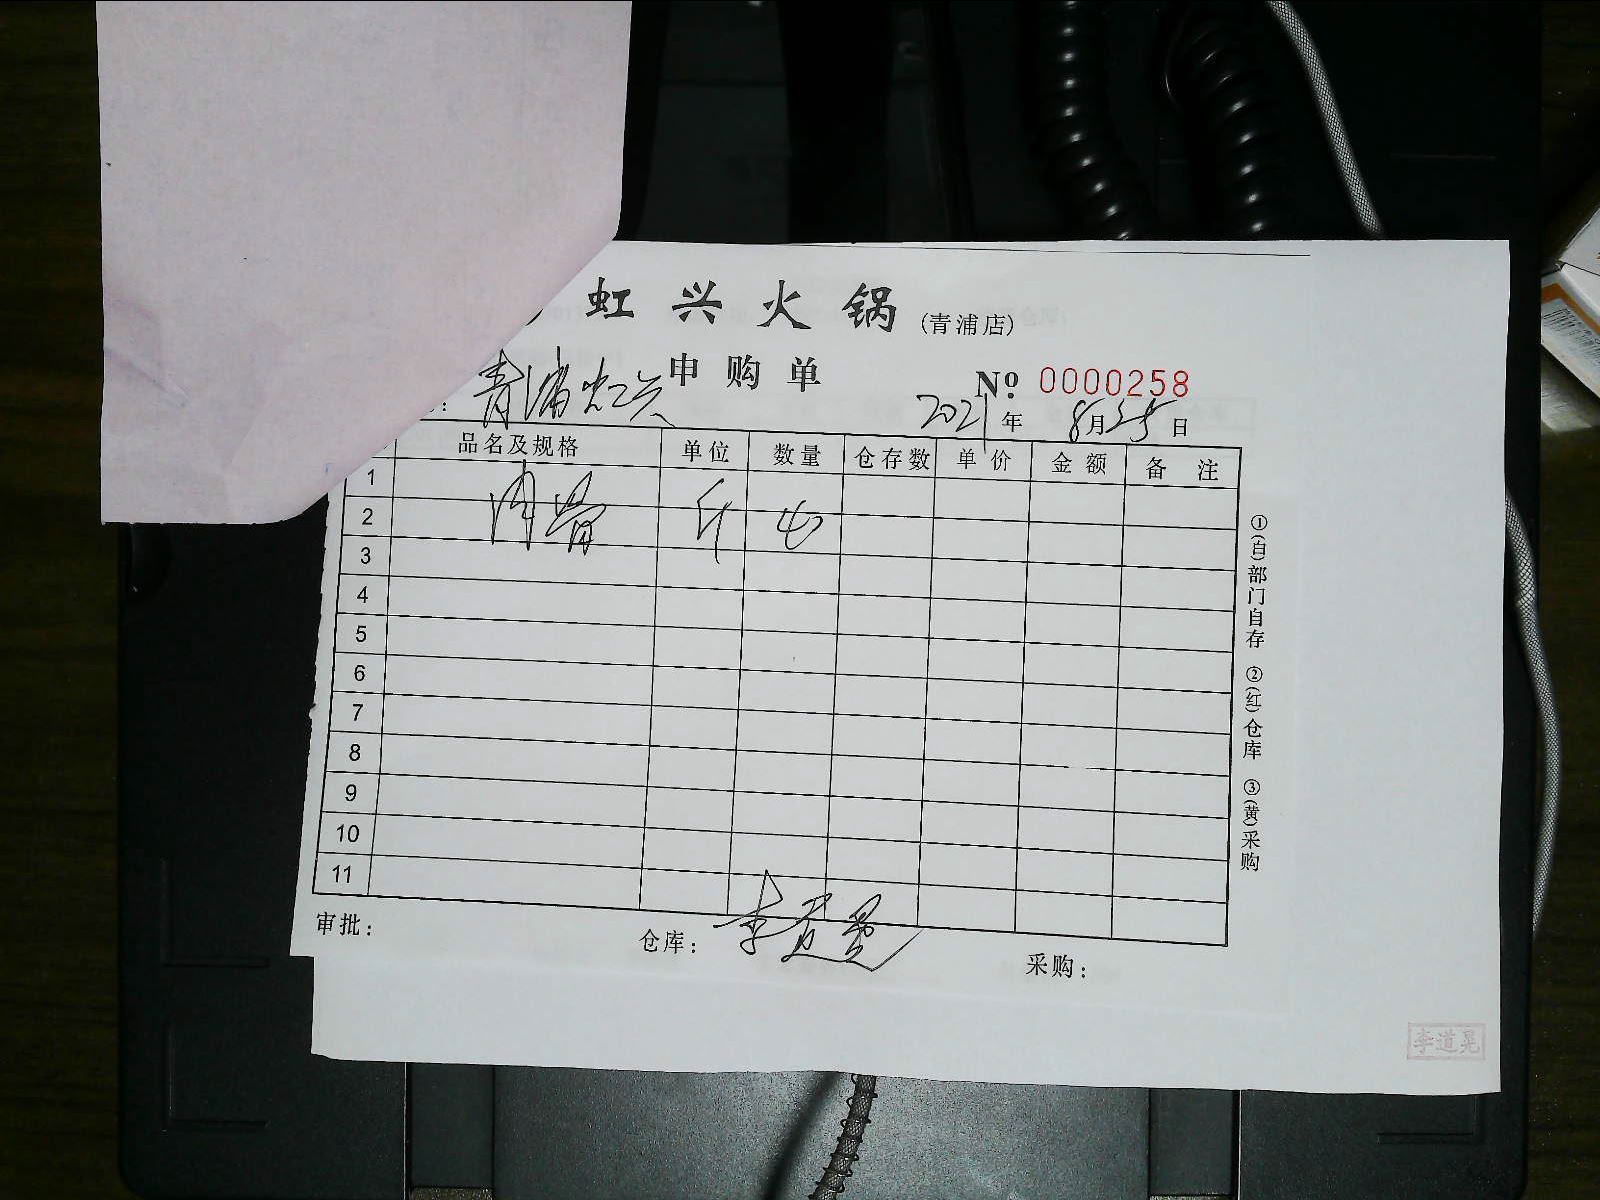 虹兴火锅(青浦店)
申购单
№ 0000258
: 青浦虹兴
2021年 8月25日
品名及规格 单位 数量 仓存数 单价 金额 备 注
1
2 肉骨 斤
3
4
5
6
7
8
9
10
11
审批:
仓库: 李道晃
采购:
①(白)部门自存 ②(红)仓库 ③(黄)采购
李道晃